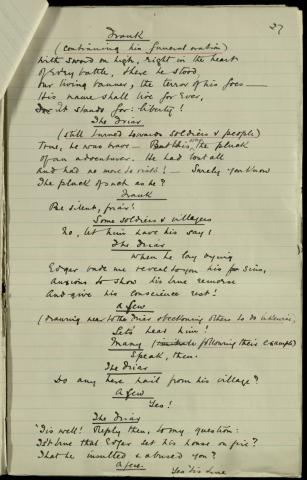 27
Drank
(continuing his funeral oration)
With sword on high, right in the heart
of every battle, there he stood
Our living banner, the terror of his foes —
His name shall live for Ever,
For it stands for: liberty!
The Friar
(still turned towards soldiers & people)
True, he was brave — But his was the pluck
of an adventurer. He had lost all
And had no more to risk! — Surely you know
The pluck of such as he?
Drank
Be silent, friar!
Some soldiers & villagers
No, let him have his say!
The Friar
When he lay dying
Edgar bade me reveal to you his sins,
Anxious to show his true remorse
And give his conscience rest!
A few
(drawing near to the Friar & beckoning others to do likewise)
Let's hear him!
Many (following their example)
Speak, then.
The Friar
Do any here hail from his village?
A few
Yes!
The Friar
'Tis well! Reply then, to my question:
Is't true that Edgar set his house on fire?
That he insulted & abused you?
A few.
Yes 'tis true